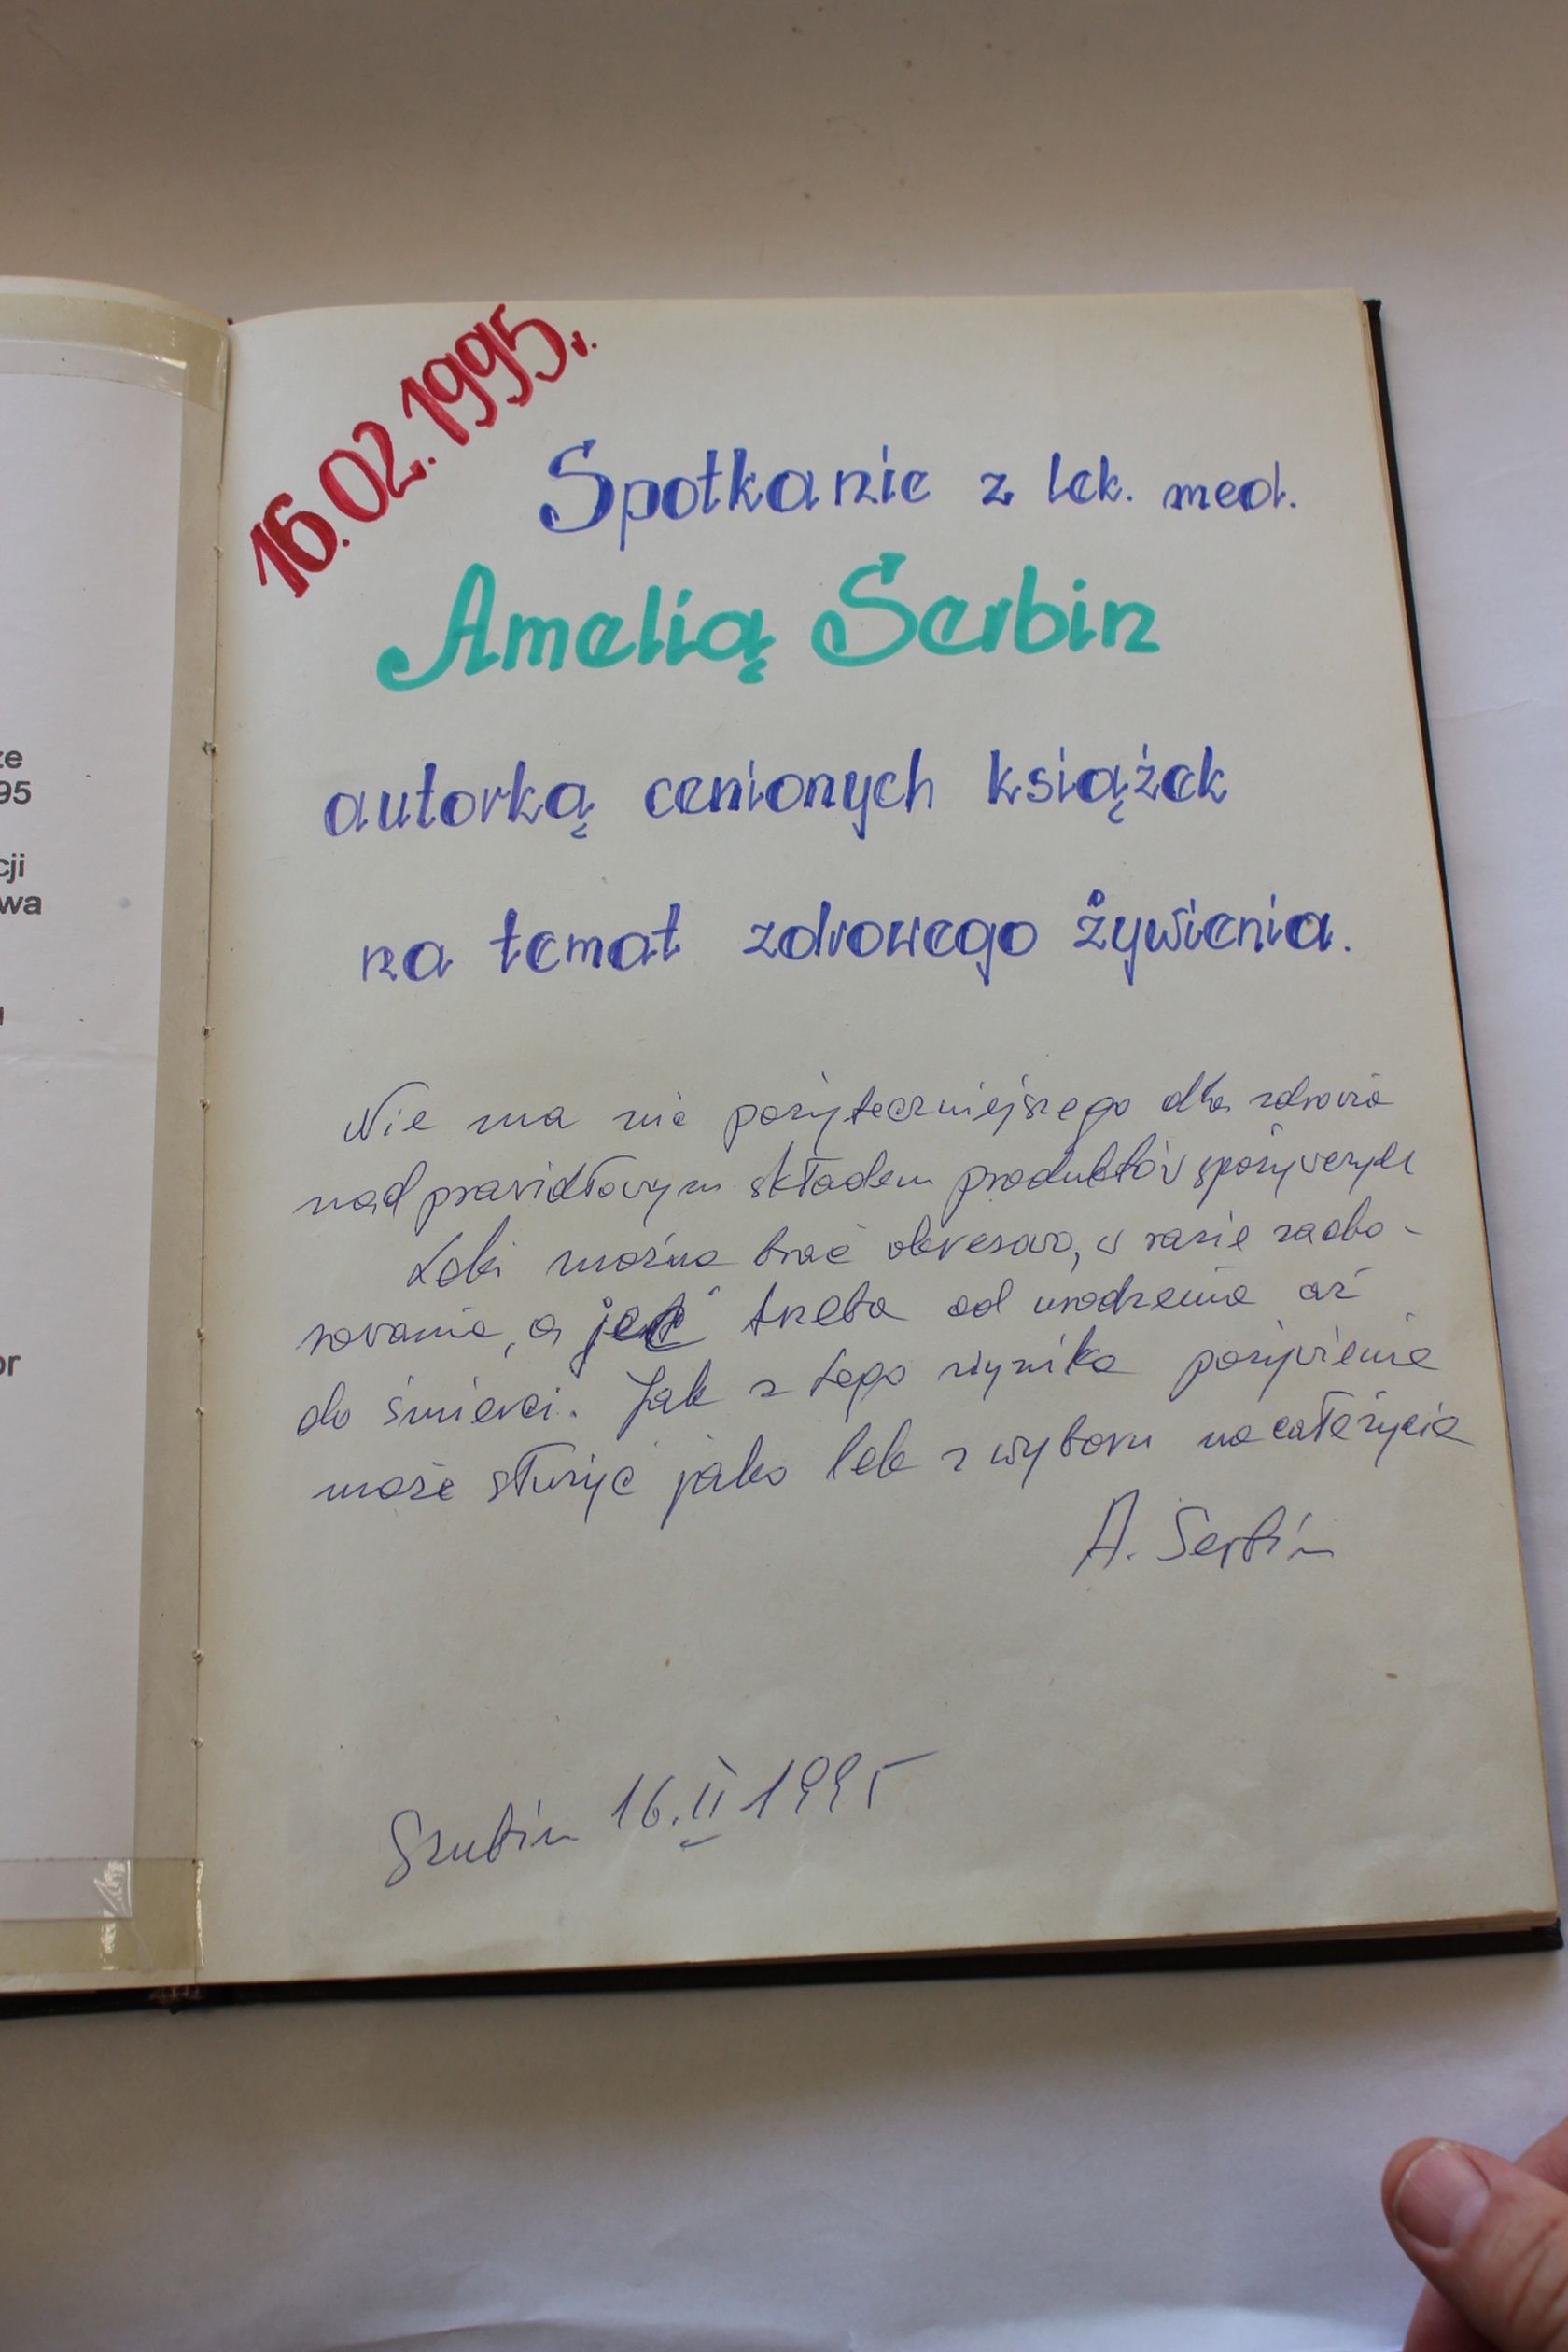 ze
95
cji
wa
or
16.02.1995r.
Spotkanie z lek. med.
Amelią Serbin
autorką cenionych książek
na temat zdrowego żywienia.
Nie ma nic pożyteczniejszego dla zdrowia
nad prawidłowym składem produktów spożywczych
Leki można brać okresowo, w razie zacho-
rowania, a jeść trzeba od urodzenia aż
do śmierci. Jak z tego wynika pożywienie
może służyć jako lek z wyboru na całe życie
A. Serbin
Szubin 16.II 1995